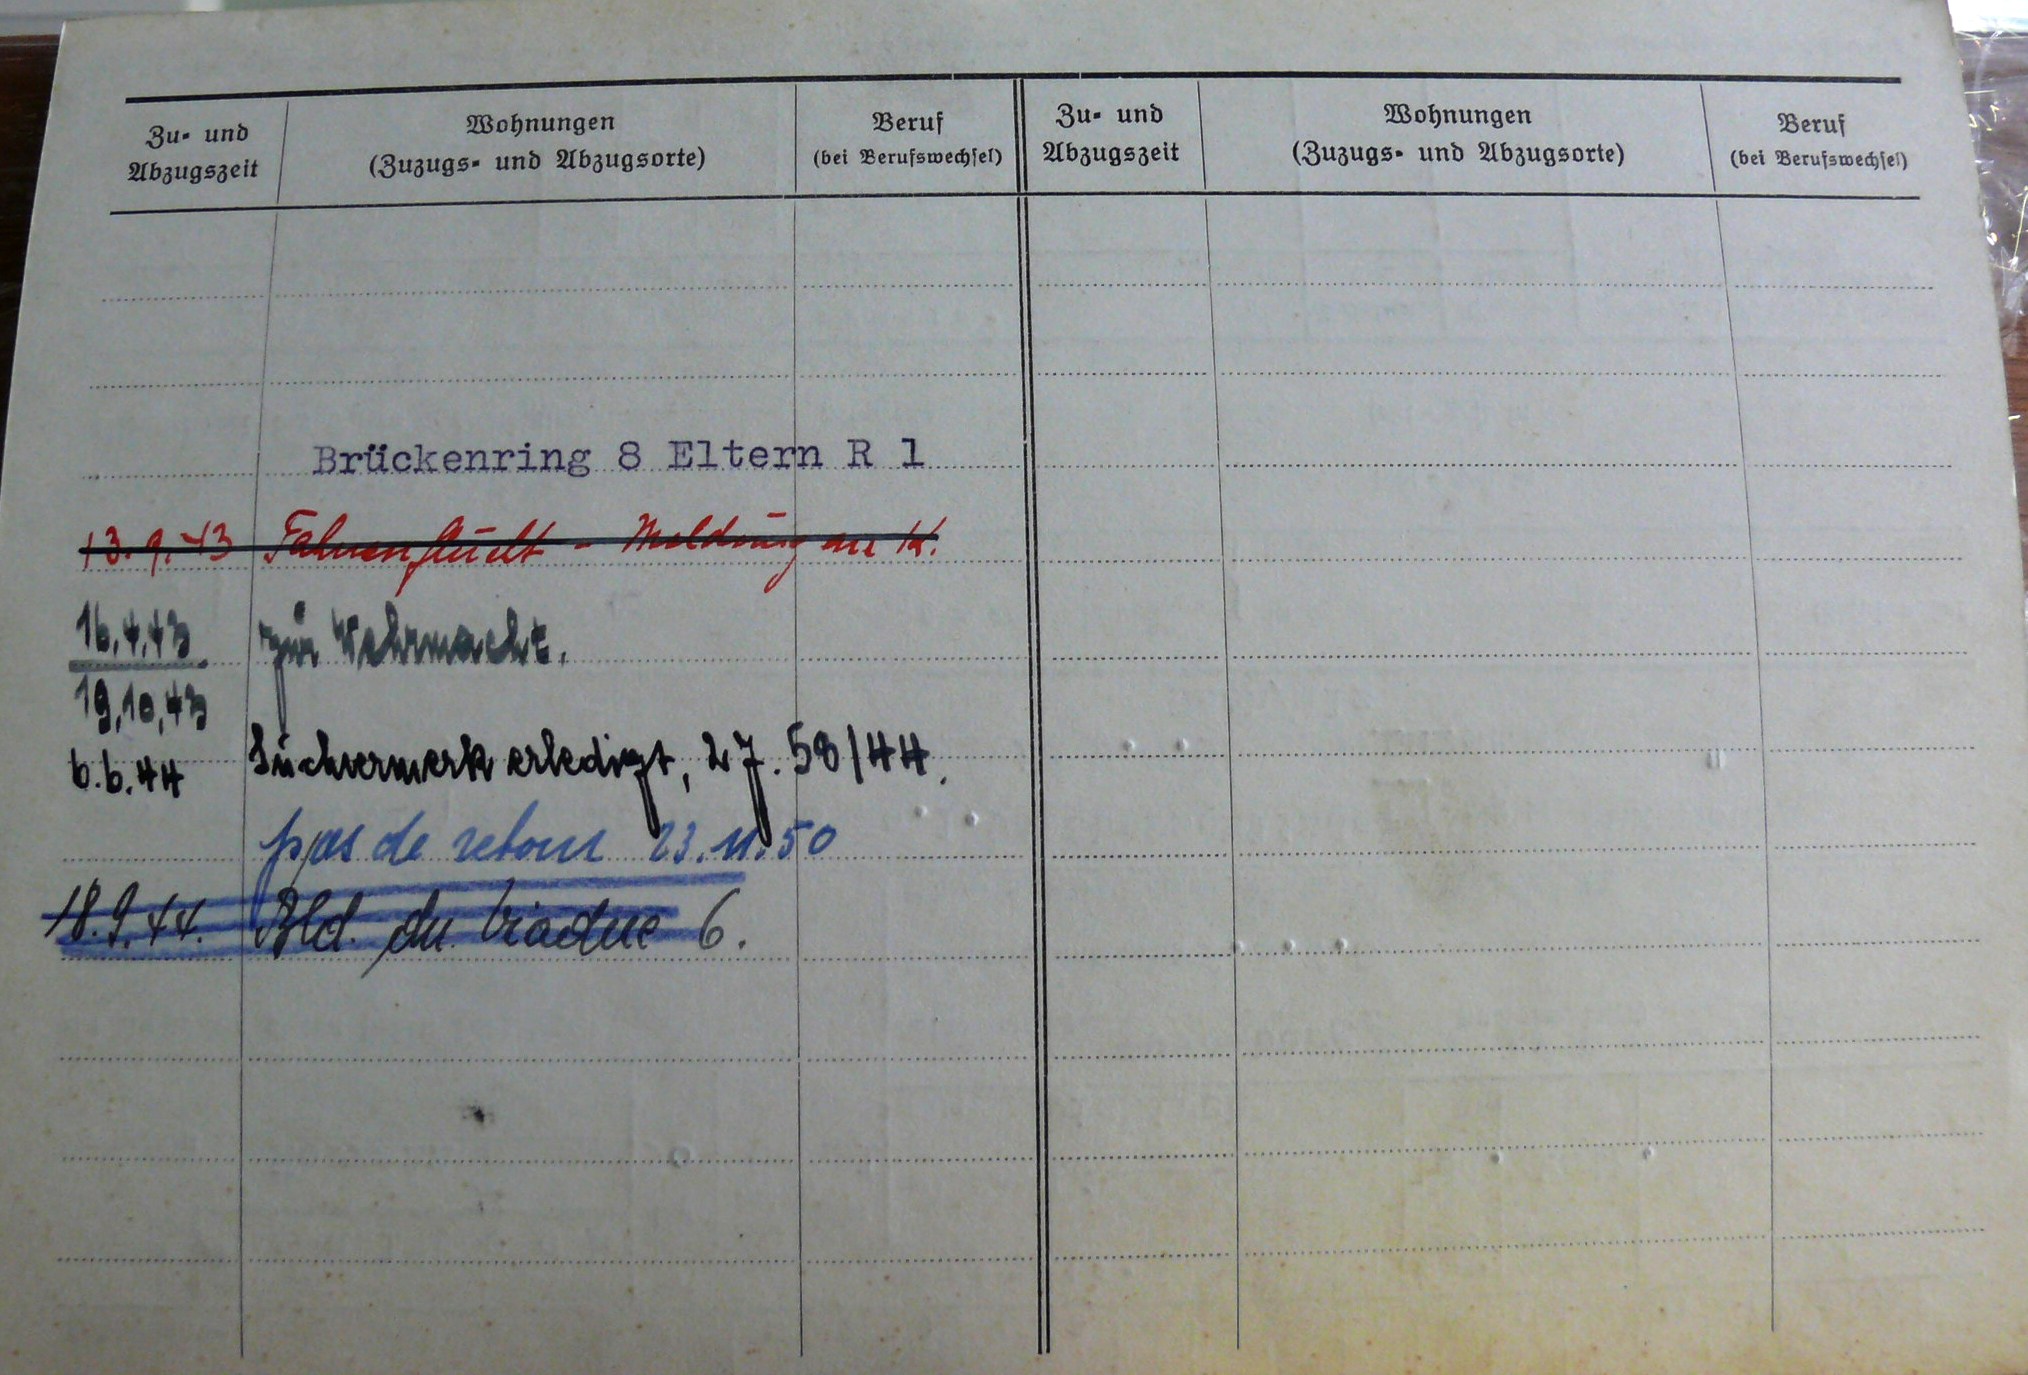 Zu- und Abzugszeit
Wohnungen
(Zuzugs- und Abzugsorte)
Beruf
(bei Berufswechsel)
Zu- und Abzugszeit
Wohnungen
(Zuzugs- und Abzugsorte)
Beruf
(bei Berufswechsel)
Brückenring 8 Eltern R 1
13.9.43 Fahnenflucht - Meldung an K.
16.4.43 zur Wehrmacht.
19.10.43
6.6.44 Suchvermerk erledigt, 27. 58/44.
pas de retour 23.11.50
18.9.44. Bld. du Viaduc 6.